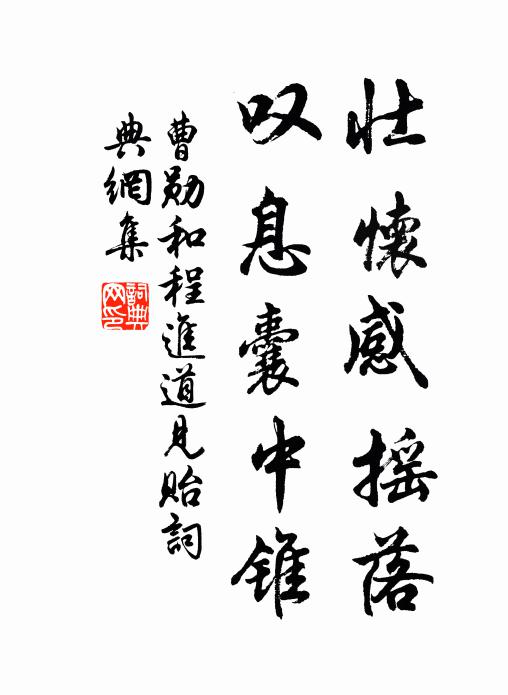 壮懷感摇落
叹息囊中錐
曹勛和程進道見貽詞
典網集
詞典
网印